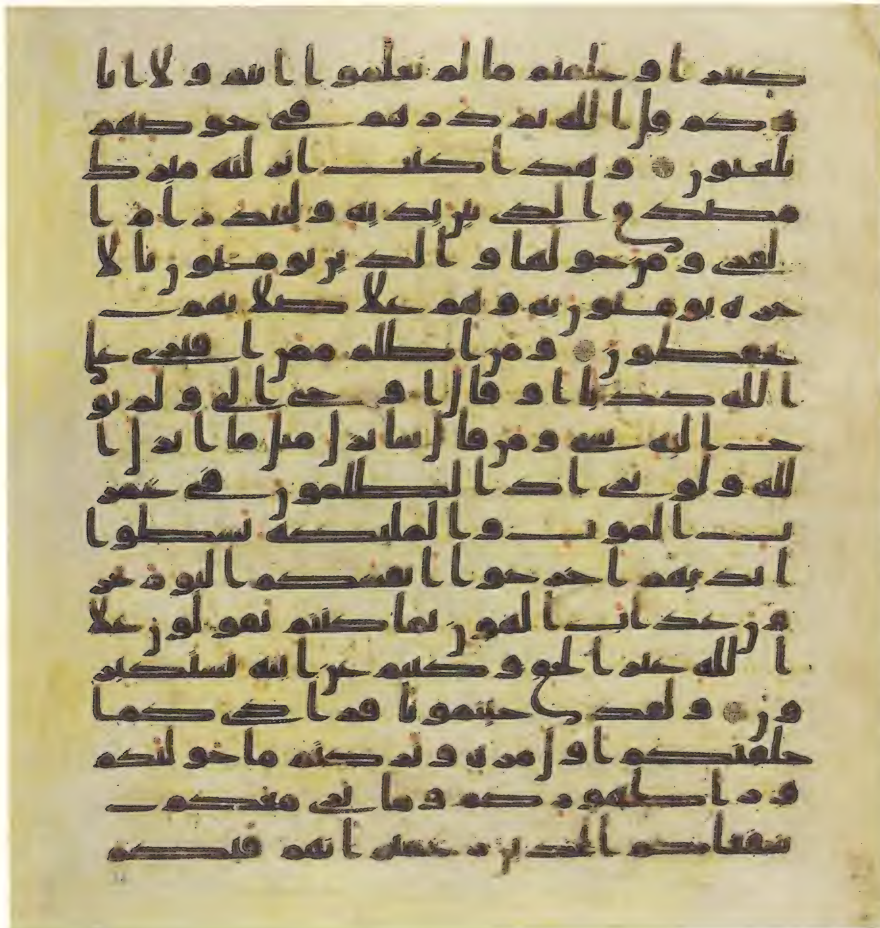 كثيرا وعلمتم ما لم تعلموا انتم ولا ابا
وكم قل الله ثم ذرهم في خوضهم
يلعبون وهذا كتب انزلنه مبرك
مصدق الذي بين يديه ولتنذر ام ا
لقرى ومن حولها والذين يومنون بالا
خرة يومنون به وهم علا صلاتهم
يحفظون ومن اظلم ممن افترى على
الله كذبا او قال اوحي الي ولم يو
ح اليه شي ومن قال سانزل مثل ما انزل ا
لله ولو ترى اذ الظلمون في غمر
ت الموت والملئكة بسطوا
ايديهم اخرجوا انفسكم اليوم تجز
ون عذاب الهون بما كنتم تقولون علا
الله غير الحق وكنتم عن ايته تستكبر
ون ولقد جئتمونا فردى كما
خلقنكم اول مرة وتركتم ما خولنكم
ورا ظهوركم وما نرى معكم
شفعاكم الذين زعمتم انهم فيكم